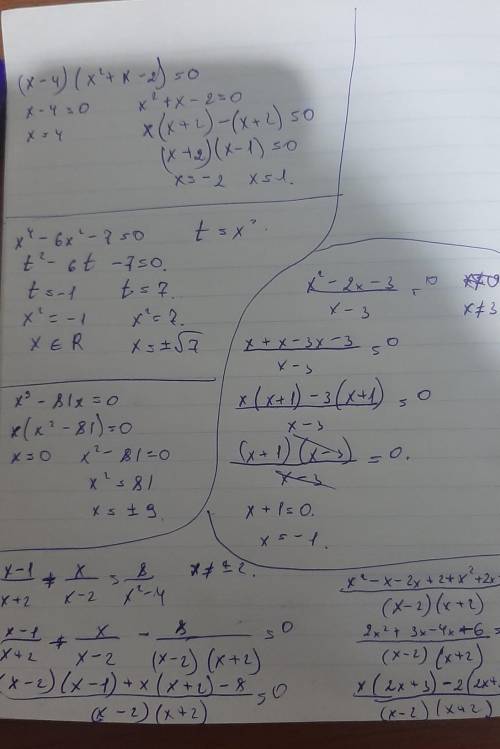 (x-4)(x²+x-2)=0
x-4=0 x²+x-2=0
x=4 x(x+2)-(x+2)=0
(x+2)(x-1)=0
x=-2 x=1.
x⁴-6x²-7=0 t=x².
t²-6t-7=0.
t=-1 t=7.
x²=-1 x²=7.
x∈R x=±√7
x³-81x=0
x(x²-81)=0
x=0 x²-81=0
x²=81
x=±9
(x²-2x-3)/(x-3)=0 x≠3
(x+x-3x-3)/(x-3)=0
(x(x+1)-3(x+1))/(x-3)=0
((x+1)(x-3))/(x-3)=0.
x+1=0.
x=-1.
(x-1)/(x+2)+x/(x-2)=8/(x²-4) x≠±2.
(x-1)/(x+2)+x/(x-2)-8/((x-2)(x+2))=0
((x-2)(x-1)+x(x+2)-8)/((x-2)(x+2))=0
(x²-x-2x+2+x²+2x)/((x-2)(x+2))
(2x²+3x-4x+6)/((x-2)(x+2))=
(x(2x+3)-2(2x+)/((x-2)(x+2))